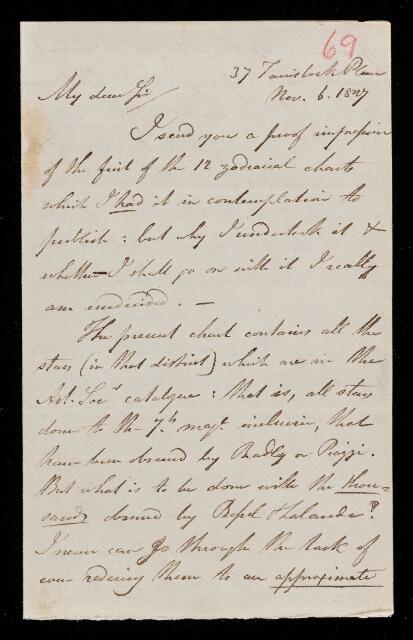 69
37 Tavistock Place
Nov. 6. 1827
My dear Sir/
I send you a proof impression
of the first of the 12 zodiacal charts
which I had it in contemplation to
publish: but why I undertook it &
whether I shall go on with it I really
am undecided. —
The present chart contains all the
stars (in that district) which are in the
Ast. Soc.s catalogue: that is, all stars
down to the 7th magt inclusive, that
have been observed by Bradley or Piazzi.
But what is to be done with the thou-
sands observed by Bessel & Lalande?
I never can go through the task of
even reducing them to an approximate